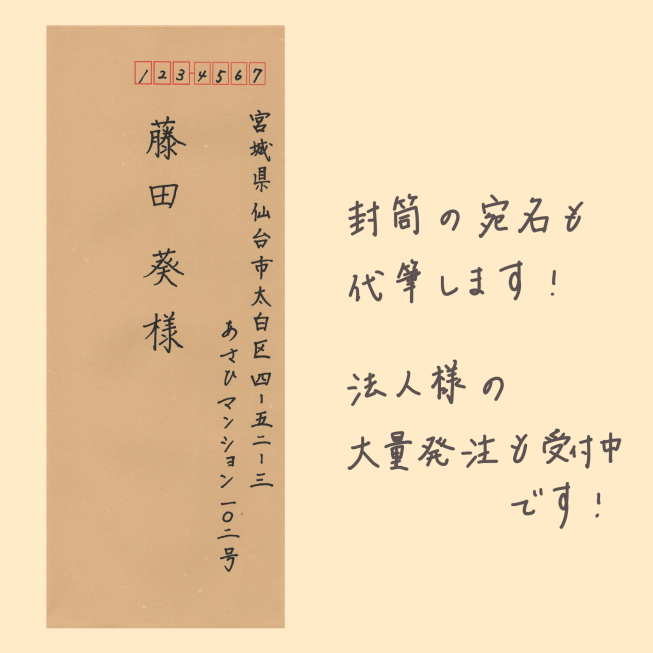 123-4567
宮城県仙台市太白区四-五二-三
あさひマンション一〇二号
藤田葵様
封筒の宛名も
代筆します！
法人様の
大量発注も受付中
です！